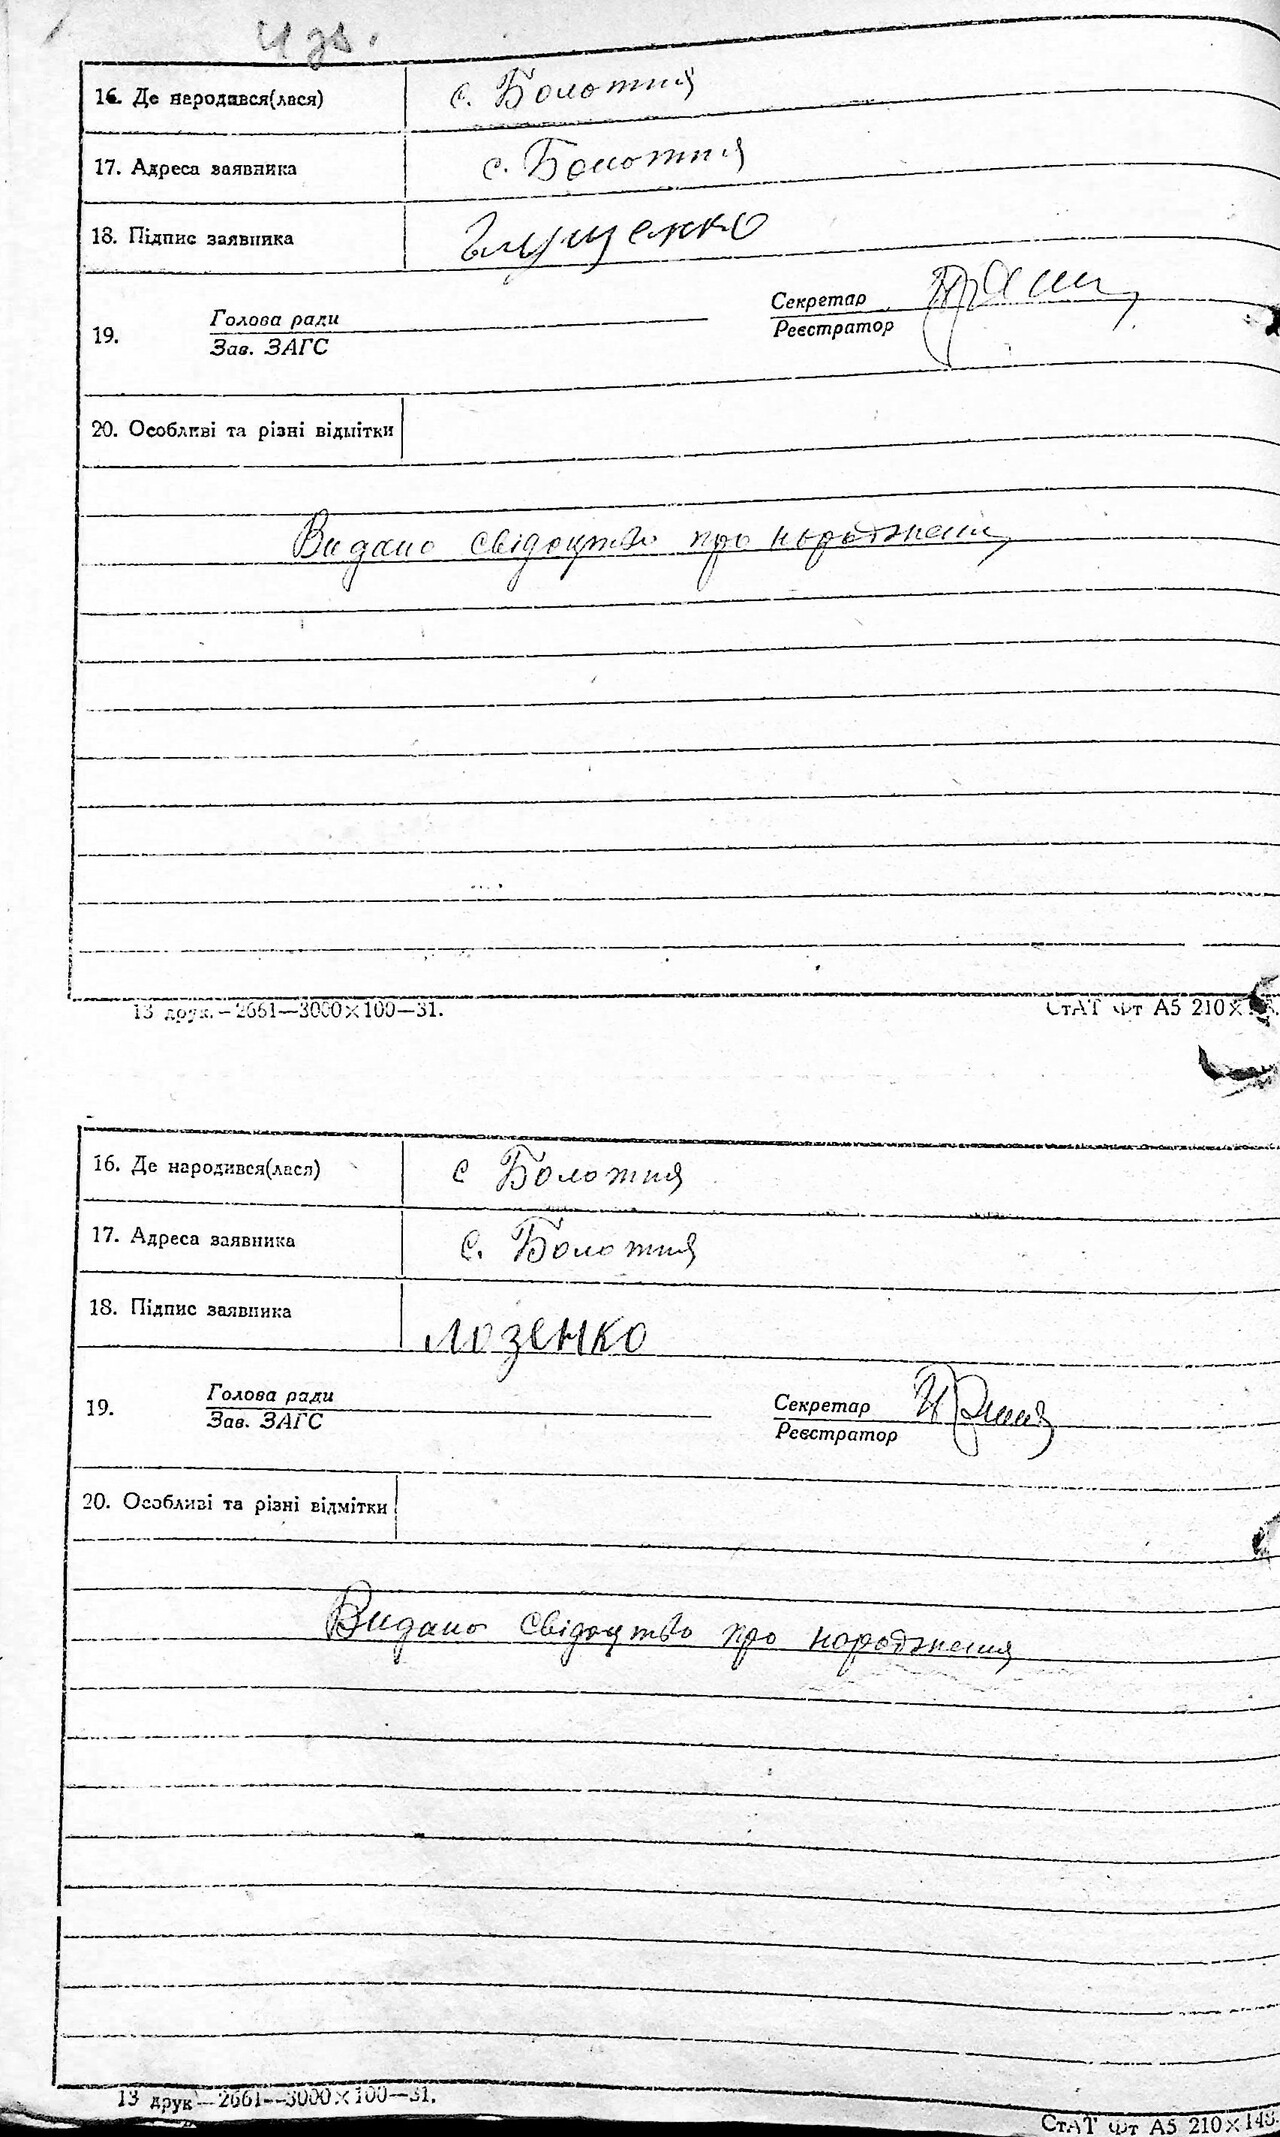 4 зв.
16. Де народився(лася) с. Болотня
17. Адреса заявника с. Болотня
18. Підпис заявника Глущенко
19. Голова ради Секретар
Зав. ЗАГС Реєстратор
20. Особливі та різні відмітки
Видано свідоцтво про народження
13 друк.—2661—3000×100—31. СтАТ Фт А5 210×
16. Де народився(лася) с Болотня
17. Адреса заявника с. Болотня
18. Підпис заявника лозенко
19. Голова ради Секретар
Зав. ЗАГС Реєстратор
20. Особливі та різні відмітки
Видано свідоцтво про народження
13 друк—2661—3000×100—31.
СтАТ Фт А5 210×148